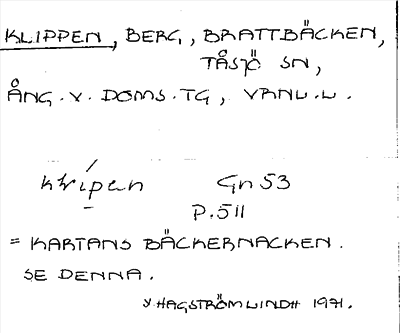 KLIPPEN, BERG, BRATTBÄCKEN,
TÅSJÖ SN,
ÅNG. V. DOMS. TG, VRNL. L.
Gn 53
P. 511
= KARTANS BÄCKERNACKEN.
SE DENNA.
HAGSTRÖM LINDH 1971.